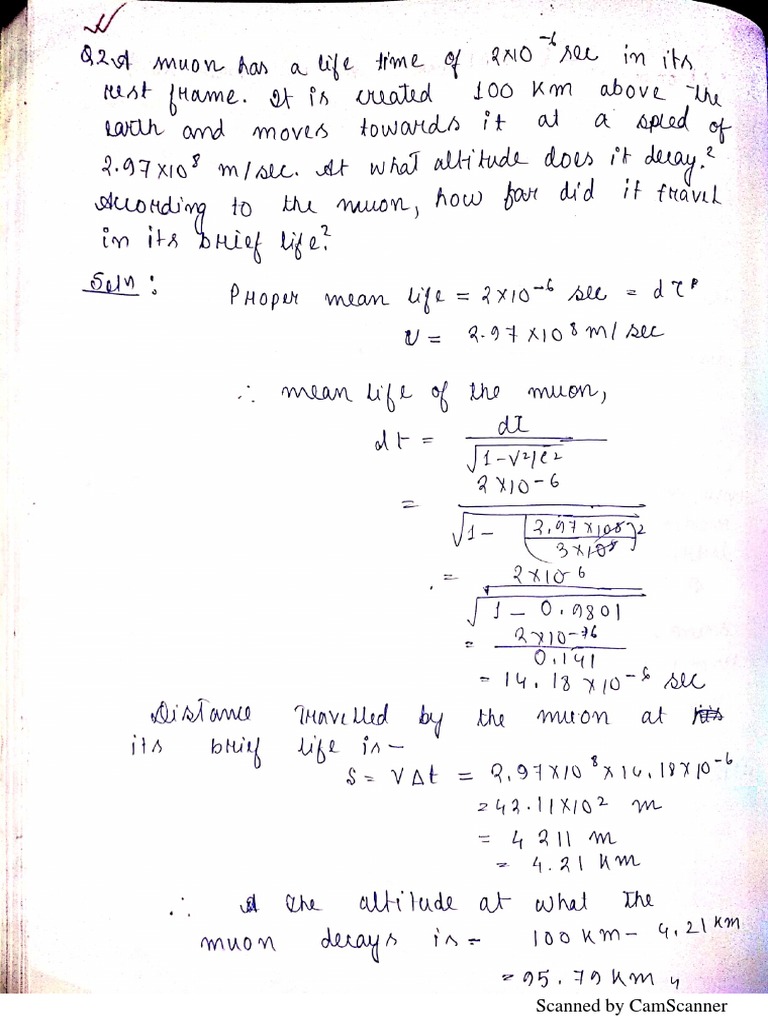 Q2. A muon has a life time of 2×10⁻⁶ sec in its
rest frame. It is created 100 Km above the
earth and moves towards it at a speed of
2.97×10⁸ m/sec. At what altitude does it decay?
According to the muon, how far did it travel
in its brief life?
Soln :
Proper mean life = 2×10⁻⁶ sec = dτ
v = 2.97×10⁸ m/sec
∴ mean life of the muon,
dt = dτ / √1-v²/c²
= 2×10-6 / √1 - (2.97×10⁸ / 3×10⁸)²
= 2×10-6 / √1 - 0.9801
= 2×10-6 / 0.141
= 14.18×10⁻⁶ sec
Distance travelled by the muon at
its brief life is-
S = V Δt = 2.97×10⁸×14.18×10⁻⁶
= 42.11×10² m
= 4211 m
= 4.21 Km
∴ the altitude at what the
muon decays is = 100 Km - 4.21 Km
= 95.79 Km
Scanned by CamScanner